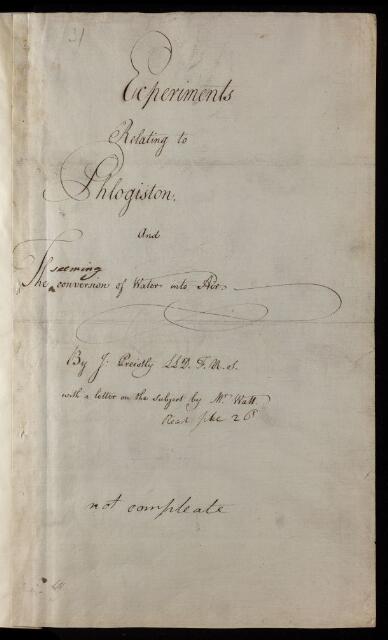 31
Experiments
Relating to
Phlogiston.
And
seeming
The ^ conversion of Water into Air.
By J. Preistly LLD. F.R.S.
with a letter on the subject by Mr Watt.
Read 26
not compleate